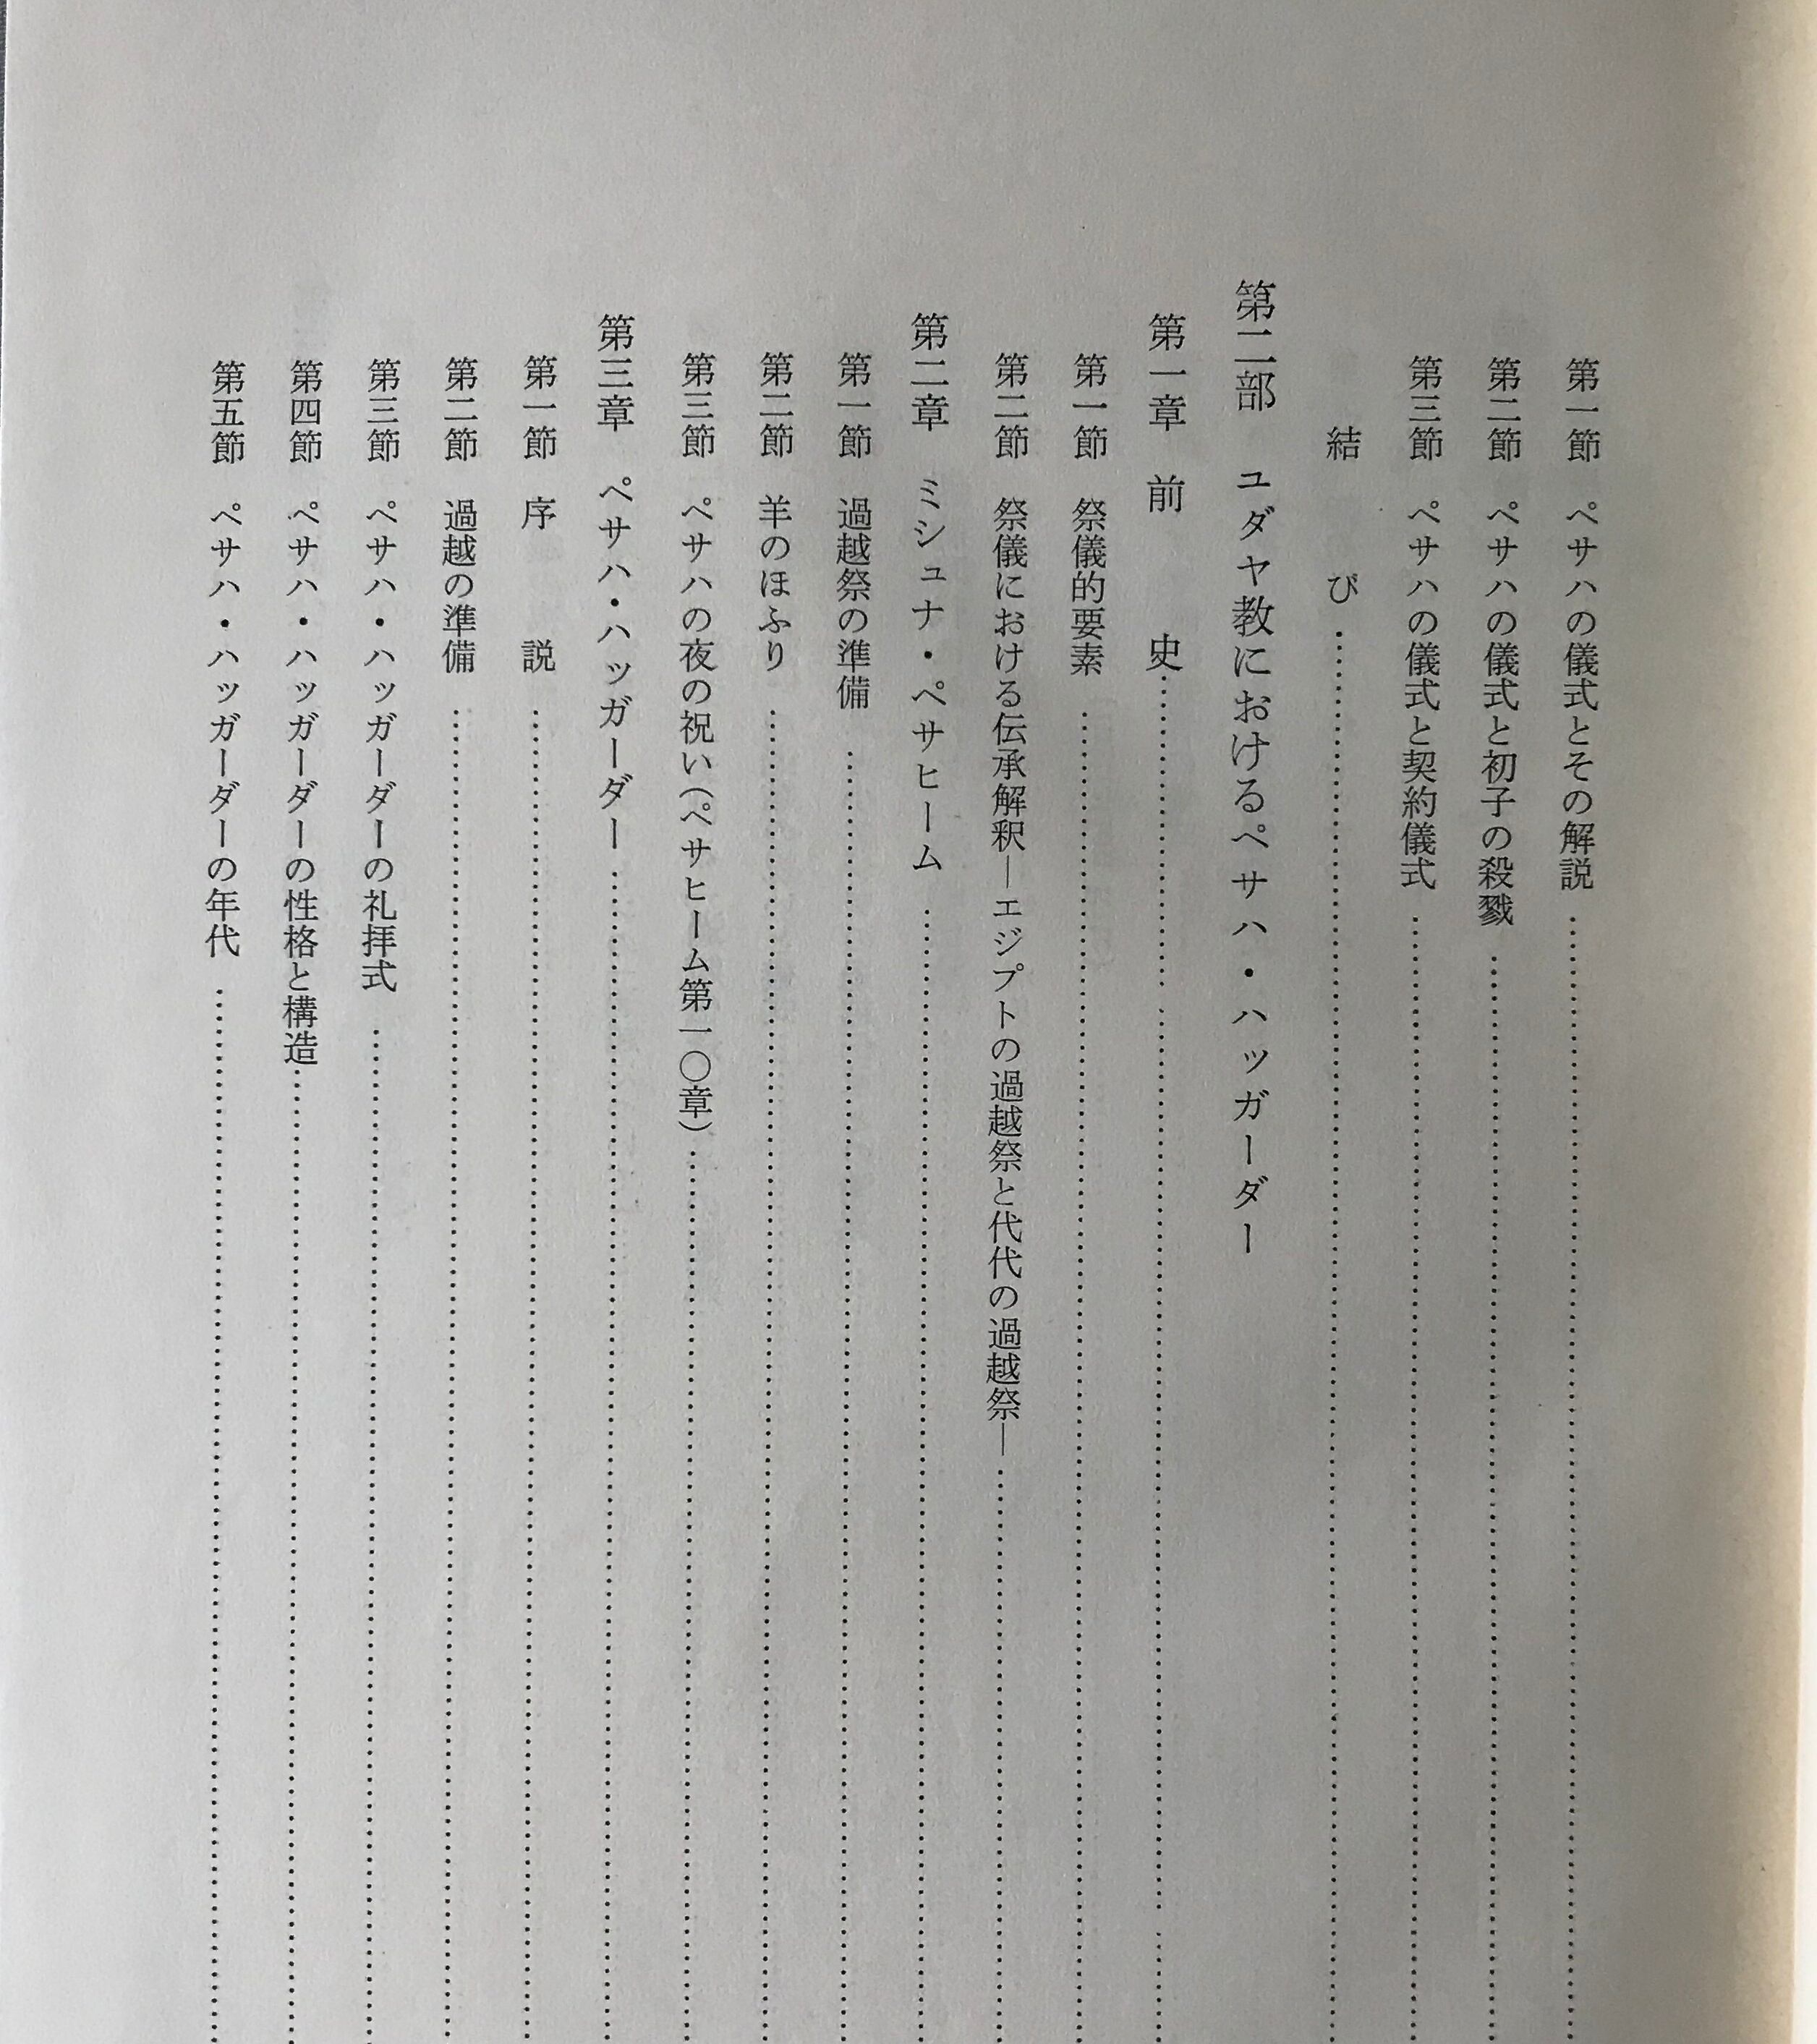 第一節　ペサハの儀式とその解説
第二節　ペサハの儀式と初子の殺戮
第三節　ペサハの儀式と契約儀式
結　び
第二部　ユダヤ教におけるペサハ・ハッガーダー
第一章　前　史
第一節　祭儀的要素
第二節　祭儀における伝承解釈―エジプトの過越祭と代代の過越祭―
第二章　ミシュナ・ペサヒーム
第一節　過越祭の準備
第二節　羊のほふり
第三節　ペサハの夜の祝い(ペサヒーム第一〇章)
第三章　ペサハ・ハッガーダー
第一節　序　説
第二節　過越の準備
第三節　ペサハ・ハッガーダーの礼拝式
第四節　ペサハ・ハッガーダーの性格と構造
第五節　ペサハ・ハッガーダーの年代